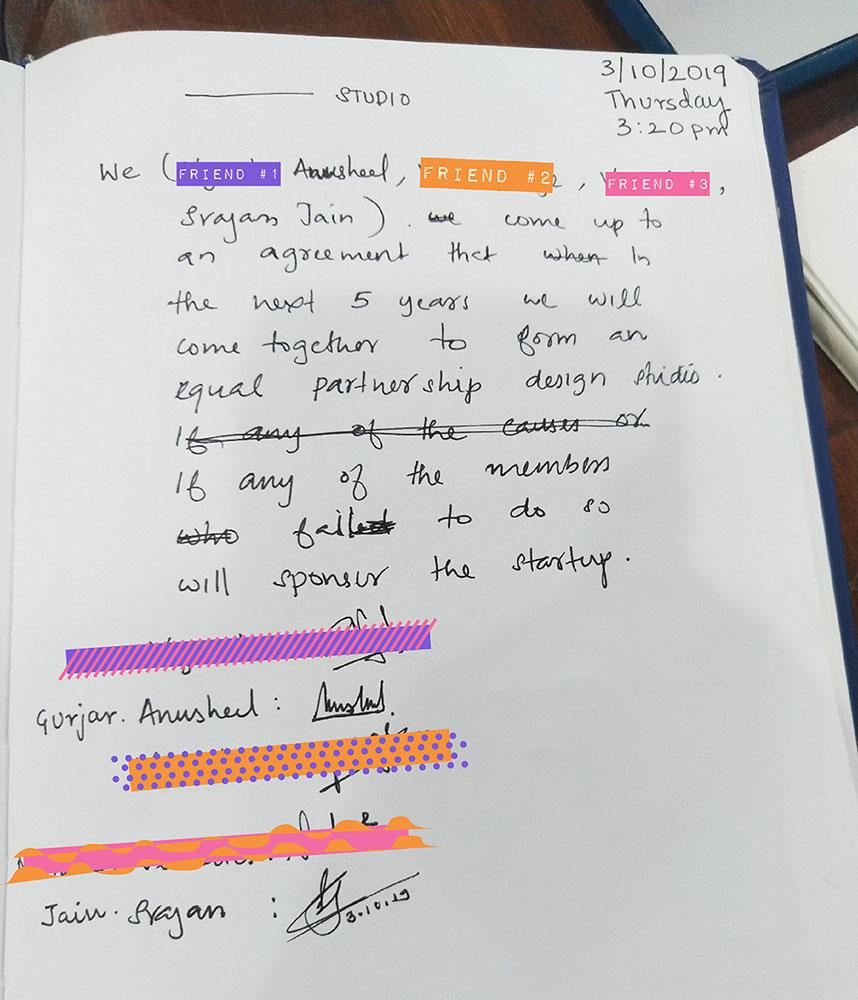 STUDIO
3/10/2019
Thursday
3:20pm
We (FRIEND #1 Anusheel, FRIEND #2, FRIEND #3,
Srajan Jain). we come up to
an agreement that when In
the next 5 years we will
come together to form an
equal partnership design studio.
If any of the causes or
If any of the members
who failed to do so
will sponsur the startup.
Gurjar. Anusheel :
Jain. Srajan : 3.10.19